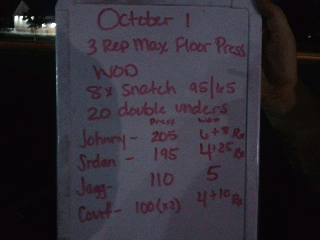 October 1
3 Rep Max Floor Press
WOD
8x Snatch 95/65
20 double unders
Press WOD
Johnny - 205 6+8 Rx
Srdan - 195 4+25 Rx
Jagg- 110 5
Court- 100(x2) 4+10 Rx